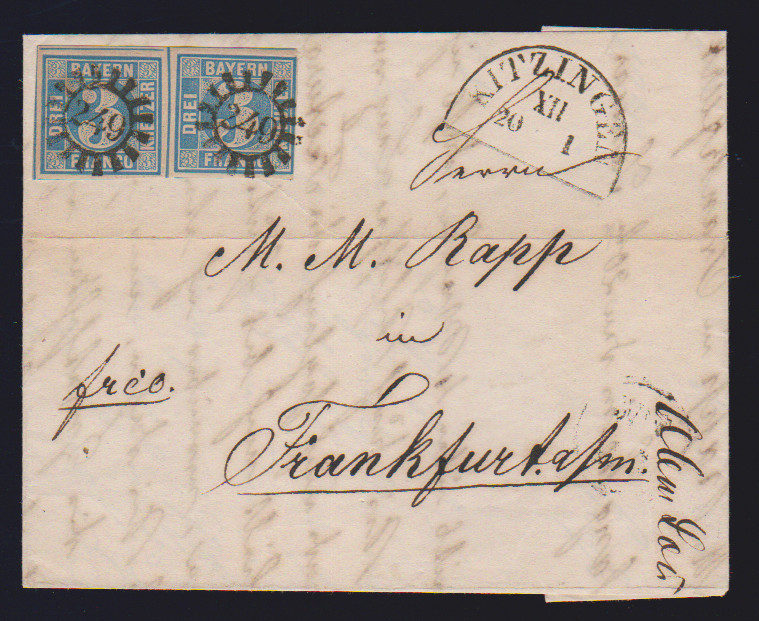 BAYERN
DREI
3
KREUZER
FRANCO
249
BAYERN
DREI
3
FRANCO
249
KITZINGEN
XII
20 1
Herrn
M. M. Rapp
in
frco.
Frankfurt a/m.